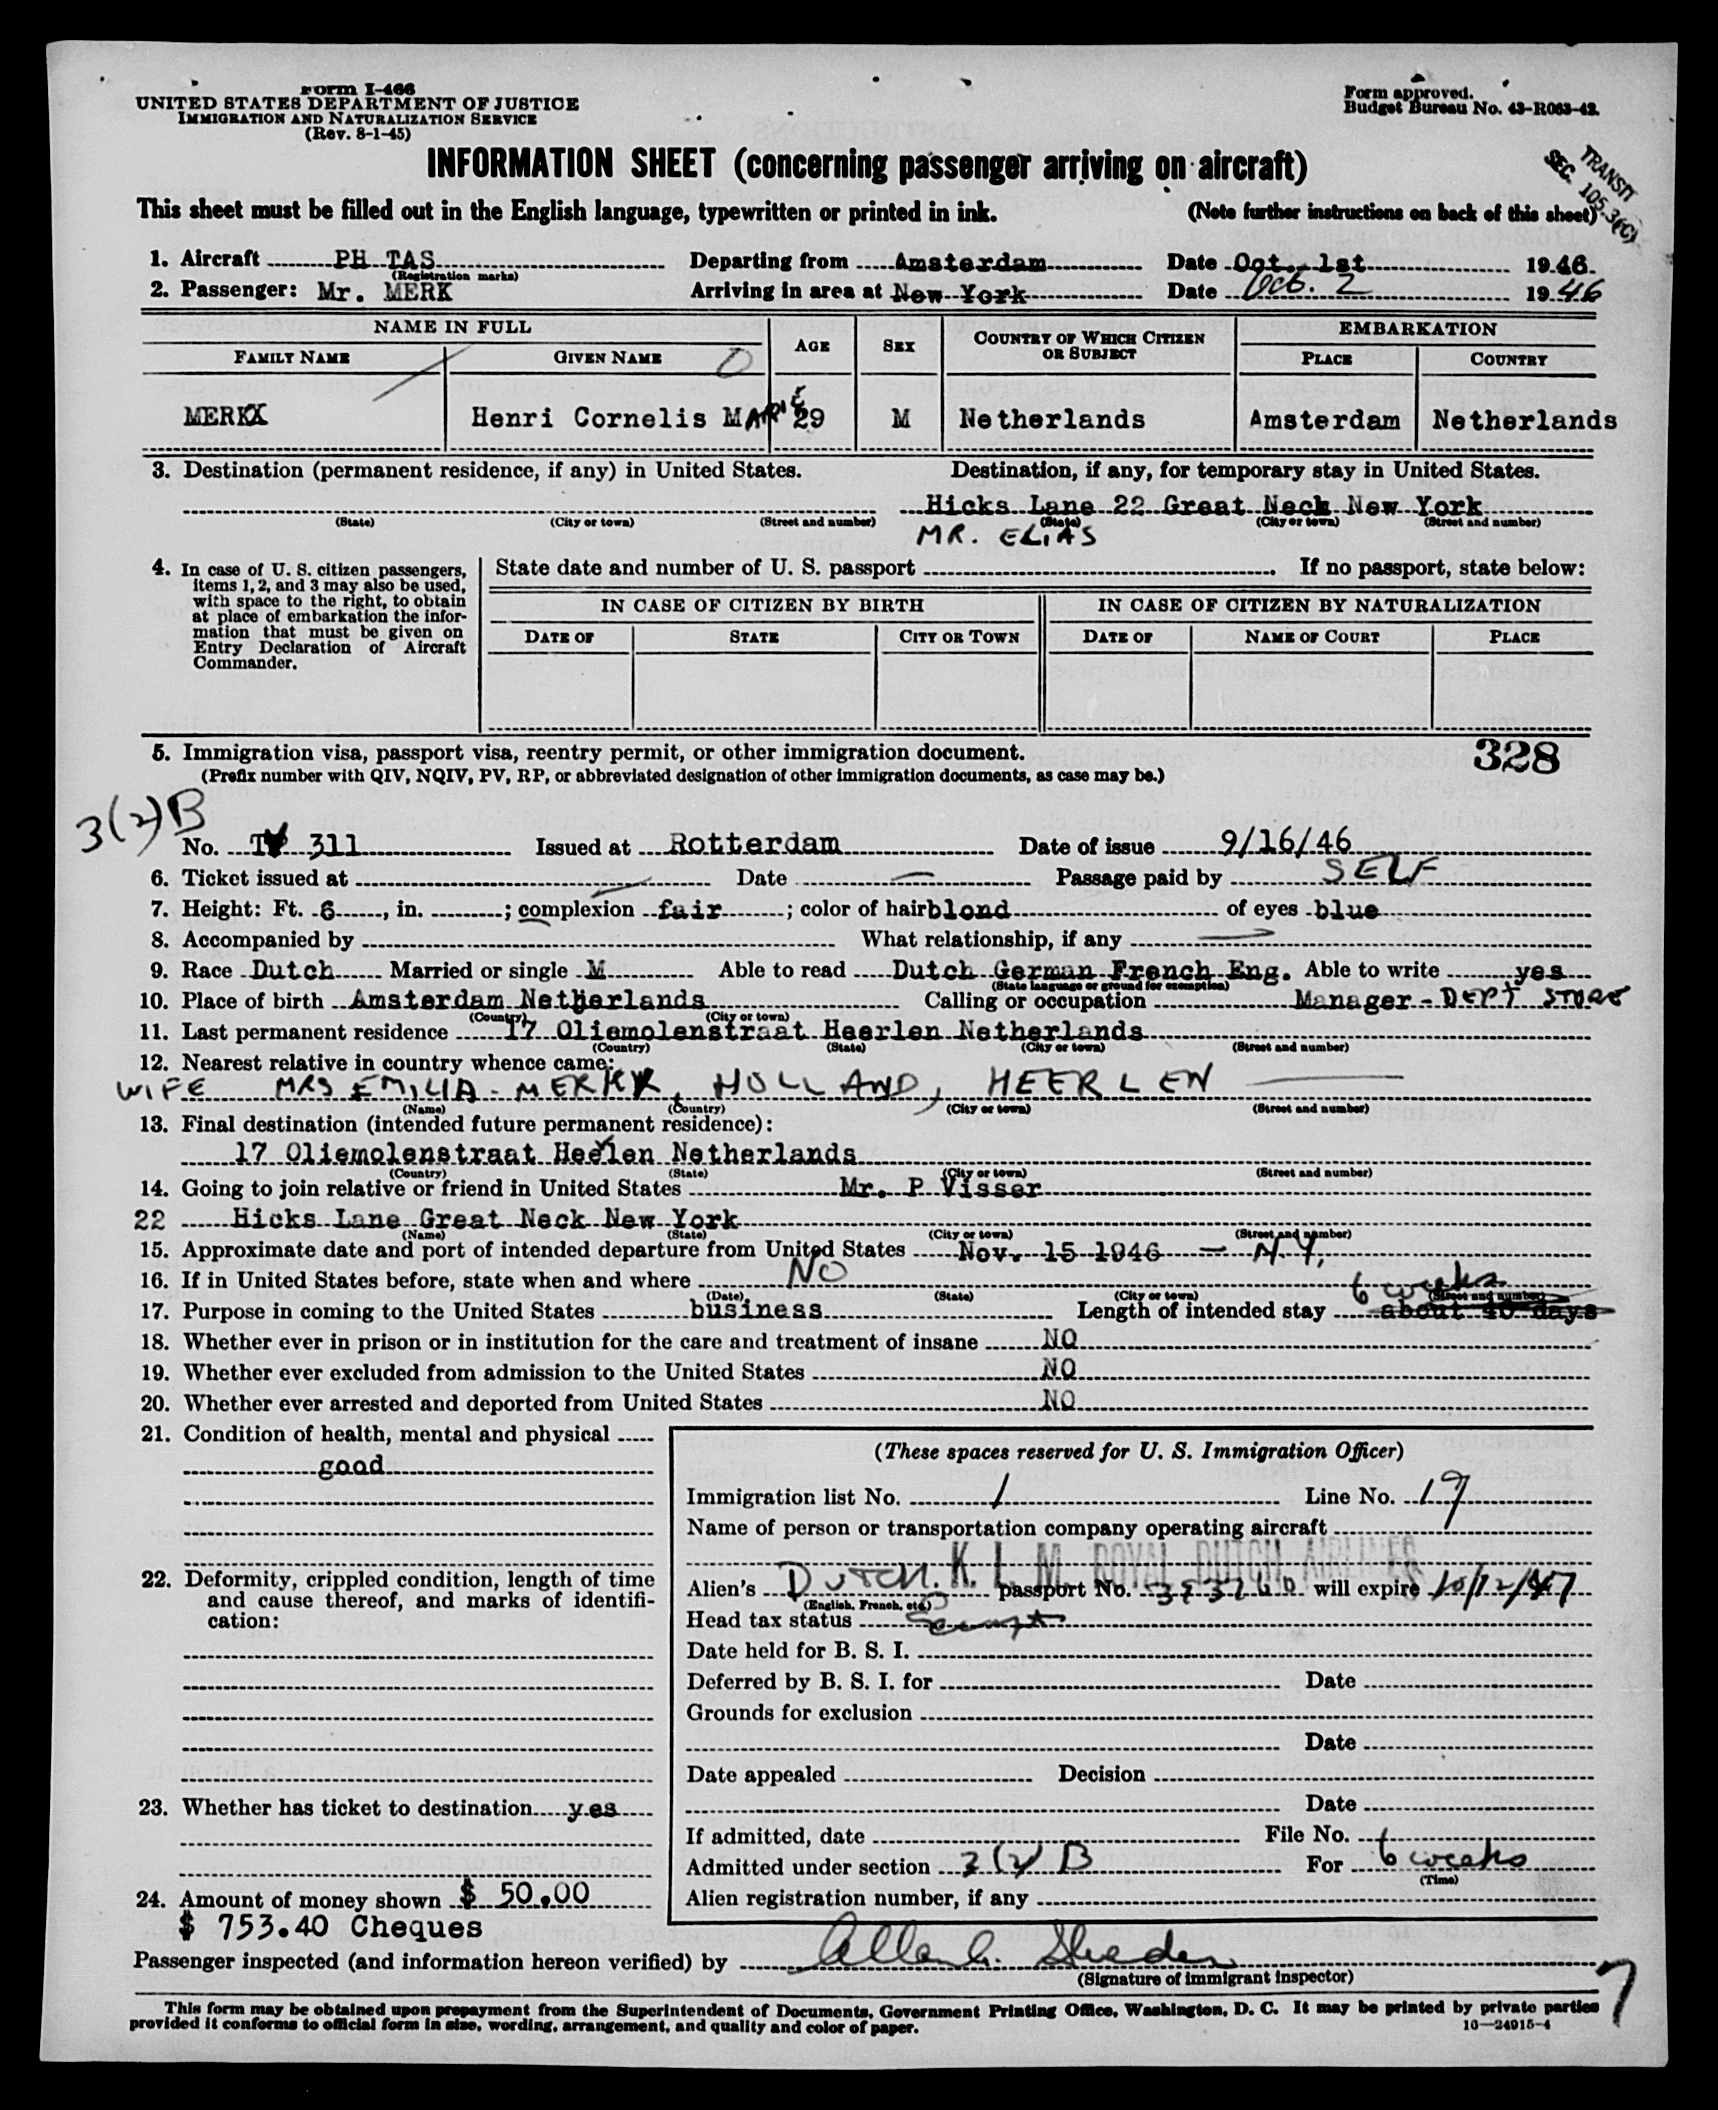 Form I-466
UNITED STATES DEPARTMENT OF JUSTICE
IMMIGRATION AND NATURALIZATION SERVICE
(Rev. 8-1-45)
Form approved.
Budget Bureau No. 43-R063-42.
TRANSIT
SEC. 105.3(C)
INFORMATION SHEET (concerning passenger arriving on aircraft)
This sheet must be filled out in the English language, typewritten or printed in ink. (Note further instructions on back of this sheet)
1. Aircraft PH TAS Departing from Amsterdam Date Oct. 1st 1946.
(Registration marks)
2. Passenger: Mr. MERK Arriving in area at New York Date Oct. 2 1946
NAME IN FULL AGE SEX COUNTRY OF WHICH CITIZEN OR SUBJECT EMBARKATION
FAMILY NAME GIVEN NAME PLACE COUNTRY
MERKX Henri Cornelis MARIE 29 M Netherlands Amsterdam Netherlands
3. Destination (permanent residence, if any) in United States. Destination, if any, for temporary stay in United States.
Hicks Lane 22 Great Neck New York
(State) (City or town) (Street and number) (State) (City or town) (Street and number)
MR. ELIAS
4. In case of U. S. citizen passengers, items 1, 2, and 3 may also be used, with space to the right, to obtain at place of embarkation the information that must be given on Entry Declaration of Aircraft Commander.
State date and number of U. S. passport . If no passport, state below:
IN CASE OF CITIZEN BY BIRTH IN CASE OF CITIZEN BY NATURALIZATION
DATE OF STATE CITY OR TOWN DATE OF NAME OF COURT PLACE
5. Immigration visa, passport visa, reentry permit, or other immigration document. 328
(Prefix number with QIV, NQIV, PV, RP, or abbreviated designation of other immigration documents, as case may be.)
3(2)B
No. TV 311 Issued at Rotterdam Date of issue 9/16/46
6. Ticket issued at Date Passage paid by SELF
7. Height: Ft. 6, in. ; complexion fair ; color of hair blond of eyes blue
8. Accompanied by What relationship, if any
9. Race Dutch Married or single M Able to read Dutch German French Eng. Able to write yes
(State language or ground for exemption)
10. Place of birth Amsterdam Netherlands Calling or occupation Manager - DEPT STORE
(Country) (City or town)
11. Last permanent residence 17 Oliemolenstraat Heerlen Netherlands
(Country) (State) (City or town) (Street and number)
12. Nearest relative in country whence came:
WIFE MRS EMILIA - MERKX, HOLLAND, HEERLEN
(Name) (Country) (City or town) (Street and number)
13. Final destination (intended future permanent residence):
17 Oliemolenstraat Heerlen Netherlands
(Country) (State) (City or town) (Street and number)
14. Going to join relative or friend in United States Mr. P Visser
22 Hicks Lane Great Neck New York
(Name) (State) (City or town) (Street and number)
15. Approximate date and port of intended departure from United States Nov. 15 1946 - N.Y.
16. If in United States before, state when and where NO
(Date) (State) (City or town) (Street and number)
6 weeks
17. Purpose in coming to the United States business Length of intended stay about 40 days
18. Whether ever in prison or in institution for the care and treatment of insane NO
19. Whether ever excluded from admission to the United States NO
20. Whether ever arrested and deported from United States NO
21. Condition of health, mental and physical
good
22. Deformity, crippled condition, length of time and cause thereof, and marks of identification:
23. Whether has ticket to destination yes
24. Amount of money shown $ 50.00
$ 753.40 Cheques
(These spaces reserved for U. S. Immigration Officer)
Immigration list No. 1 Line No. 19
Name of person or transportation company operating aircraft
K. L. M. ROYAL DUTCH AIRLINES
Alien's DUTCH. passport No. will expire 10/12/47
(English, French, etc.)
Head tax status
Date held for B. S. I.
Deferred by B. S. I. for Date
Grounds for exclusion
Date
Date appealed Decision
Date
If admitted, date File No.
Admitted under section 3(2)B For 6 weeks
(Time)
Alien registration number, if any
Passenger inspected (and information hereon verified) by
(Signature of immigrant inspector)
7
This form may be obtained upon prepayment from the Superintendent of Documents, Government Printing Office, Washington, D. C. It may be printed by private parties
provided it conforms to official form in size, wording, arrangement, and quality and color of paper.
10—24915-4